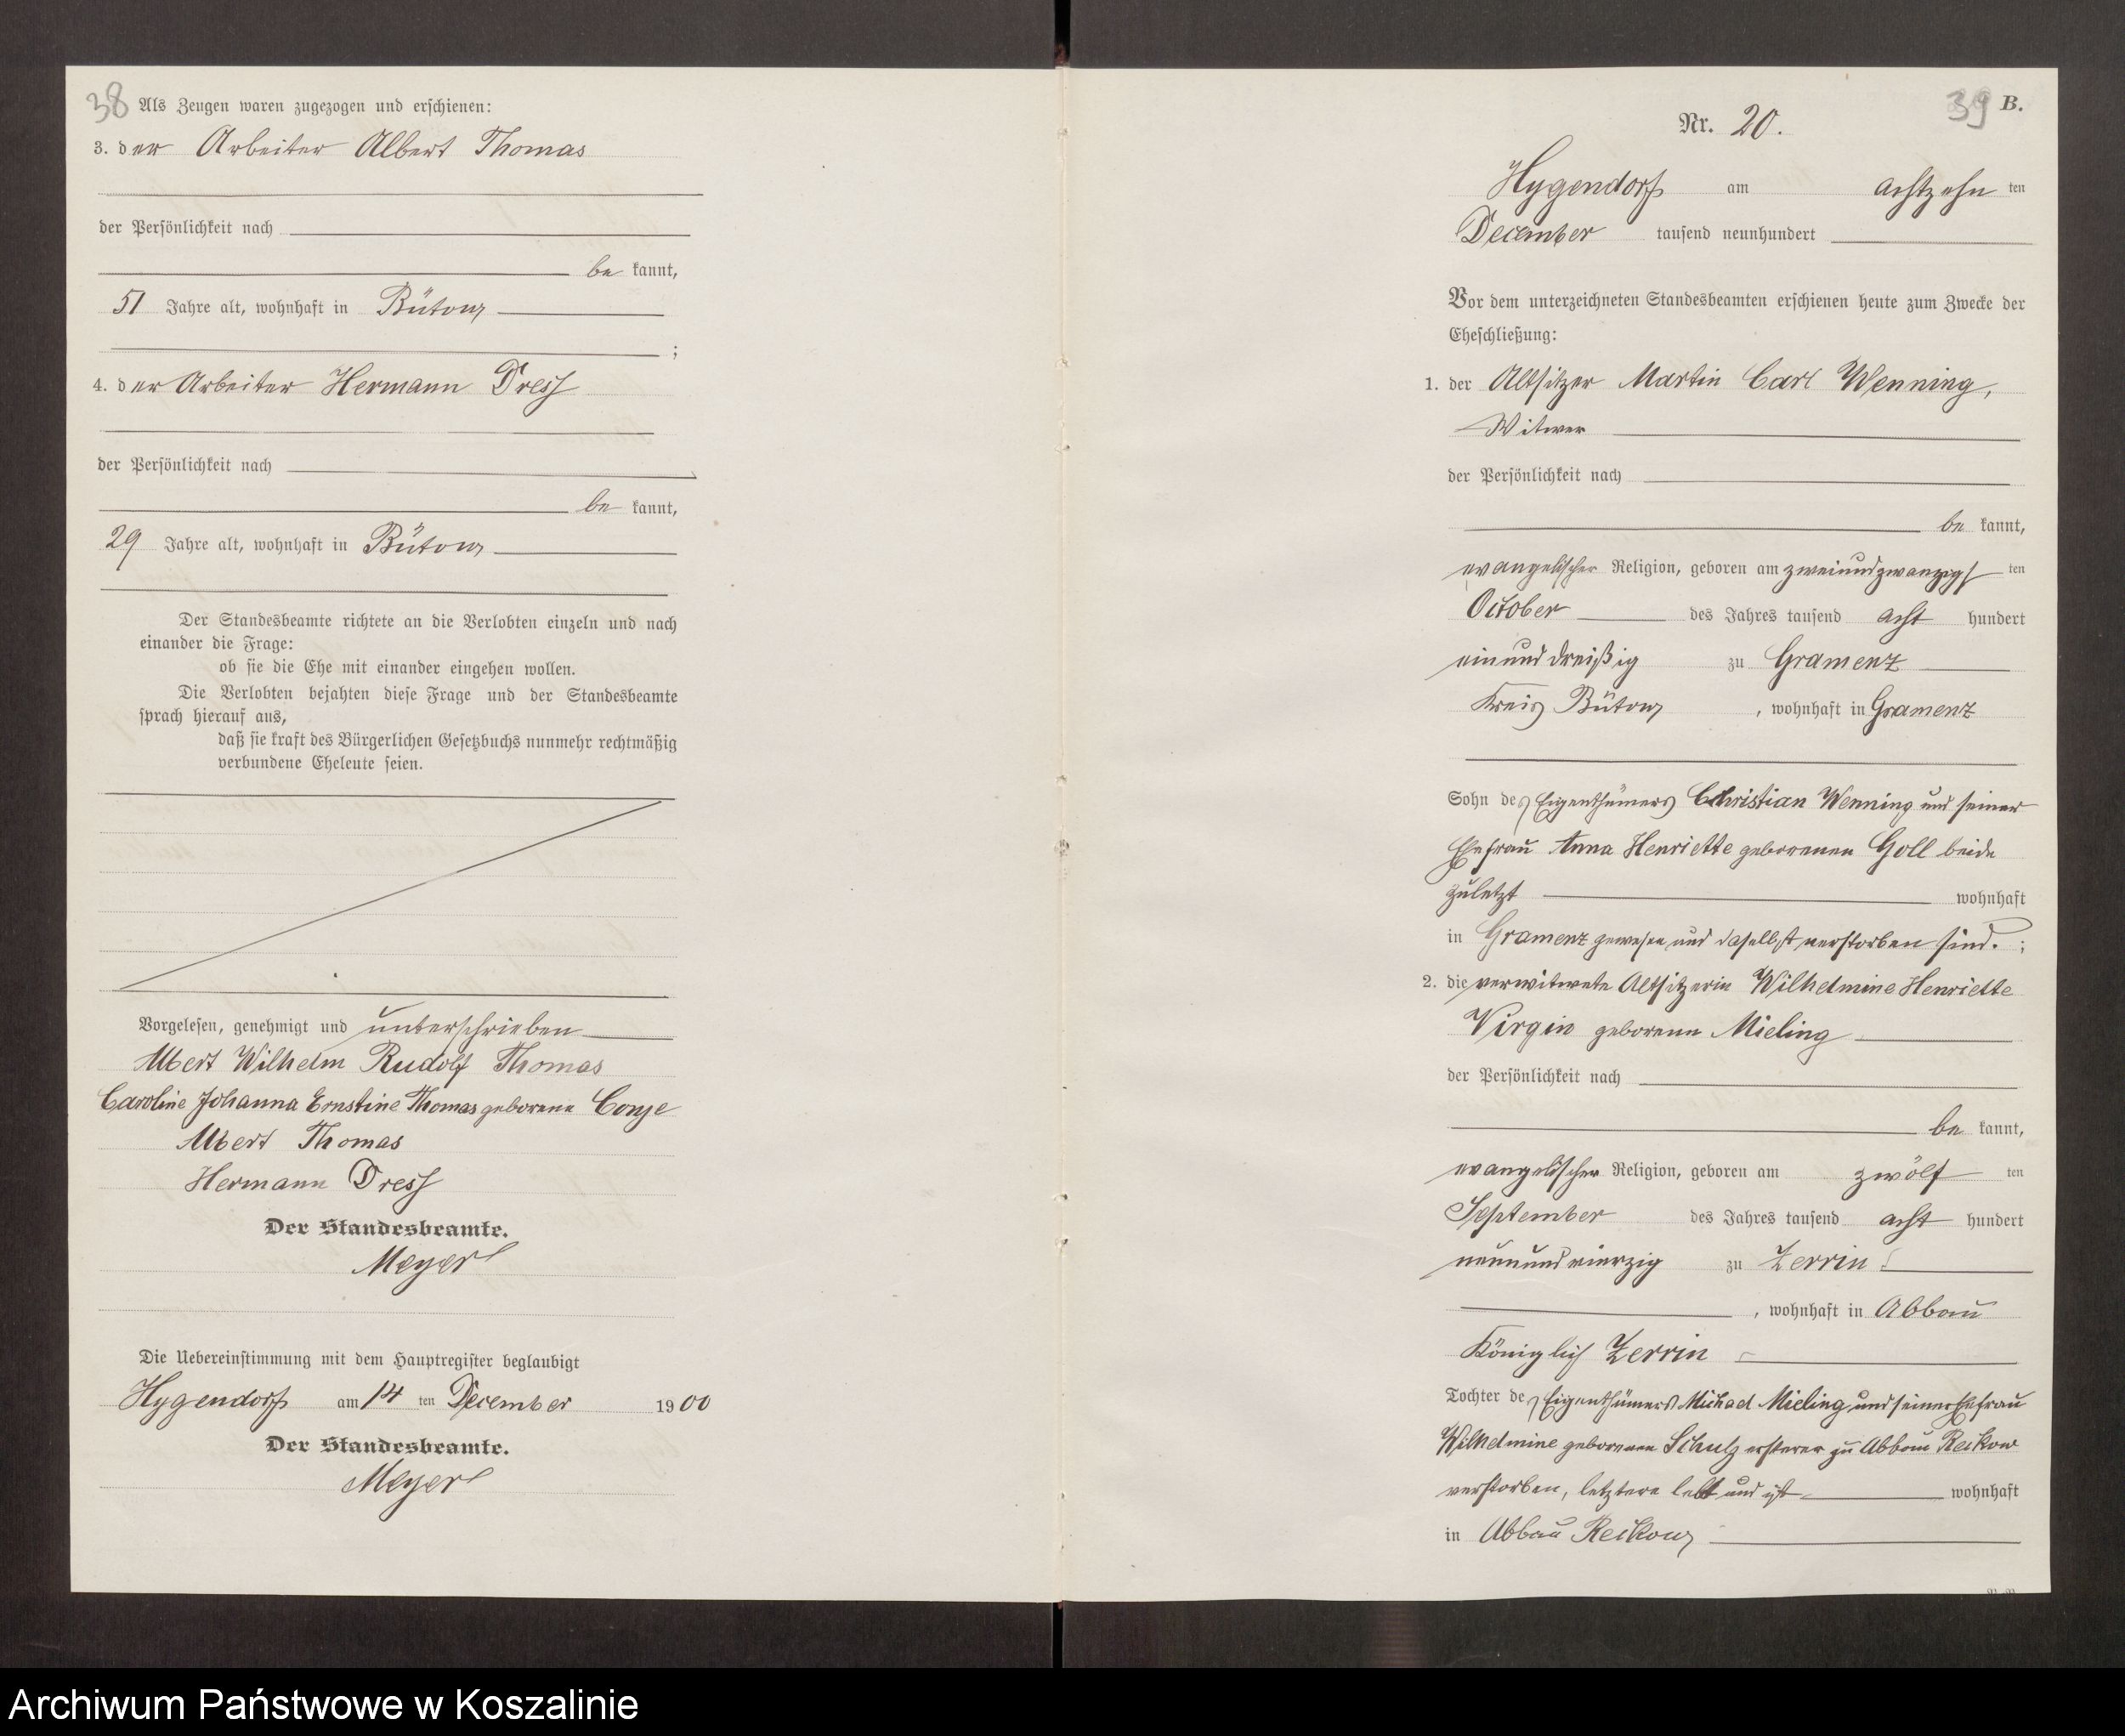 38
Als Zeugen waren zugezogen und erschienen:
3. der Arbeiter Albert Thomas
der Persönlichkeit nach
be kannt,
51 Jahre alt, wohnhaft in Bütow
;
4. der Arbeiter Hermann Dress
der Persönlichkeit nach
be kannt,
29 Jahre alt, wohnhaft in Bütow
Der Standesbeamte richtete an die Verlobten einzeln und nach
einander die Frage:
ob sie die Ehe mit einander eingehen wollen.
Die Verlobten bejahten diese Frage und der Standesbeamte
sprach hierauf aus,
daß sie kraft des Bürgerlichen Gesetzbuchs nunmehr rechtmäßig
verbundene Eheleute seien.
Vorgelesen, genehmigt und unterschrieben
Albert Wilhelm Rudolf Thomas
Caroline Johanna Ernstine Thomas geborene
Albert Thomas
Hermann Dress
Der Standesbeamte.
Meyer
Die Uebereinstimmung mit dem Hauptregister beglaubigt
Hygendorf am 14 ten December 1900
Der Standesbeamte.
Meyer
39 B.
Nr. 20.
Hygendorf am achtzehn ten
December tausend neunhundert
Vor dem unterzeichneten Standesbeamten erschienen heute zum Zwecke der
Eheschließung:
1. der Altsitzer Martin Carl Wenning,
Witwer
der Persönlichkeit nach
be kannt,
evangelischer Religion, geboren am zweiundzwanzigs ten
October des Jahres tausend acht hundert
einunddreißig zu Gramenz
Kreis Bütow, wohnhaft in Gramenz
Sohn des Eigenthümers Christian Wenning und seiner
Ehefrau Anna Henriette geborenen Goll beide
zuletzt wohnhaft
in Gramenz gewesen und daselbst verstorben sind. ;
2. die verwitwete Altsitzerin Wilhelmine Henriette
Virgin geborene Mieling
der Persönlichkeit nach
be kannt,
evangelischer Religion, geboren am zwölf ten
September des Jahres tausend acht hundert
neunundvierzig zu Zerrin
, wohnhaft in Abbau
Königlich Zerrin
Tochter des Eigenthümers Michael Mieling und seiner Ehefrau
Wilhelmine geborenen Schulz ersterer zu Abbau Reckow
verstorben, letztere lebt und ist wohnhaft
in Abbau Reckow
Archiwum Państwowe w Koszalinie